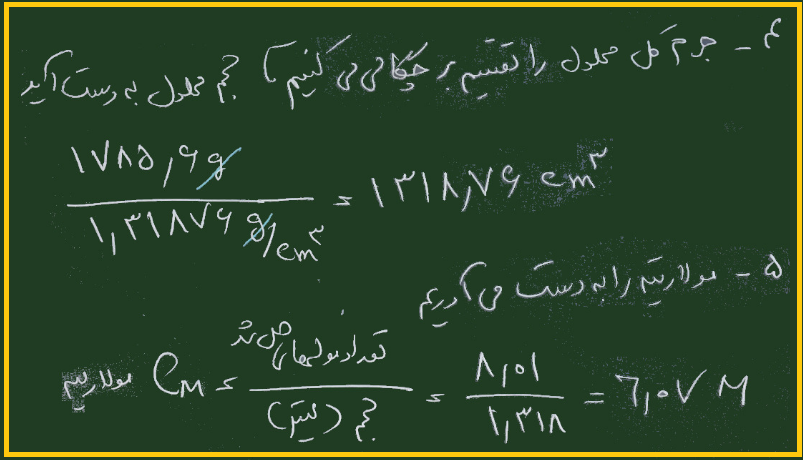 ۴ - جرم کل محلول را تقسیم بر چگالی می کنیم تا حجم محلول به دست آید
۱۷۸۵,۶ g / ۱,۳۱۸۷۶ g/cm۳ = ۱۳۱۸,۷۶ cm۳
۵ - مولاریته را به دست می آوریم
مولاریته CM = تعداد مولهای حل شده / حجم (لیتر) = ۸,۰۱ / ۱,۳۱۸ = ۶,۰۷ M